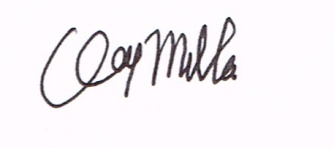 Clay Miller